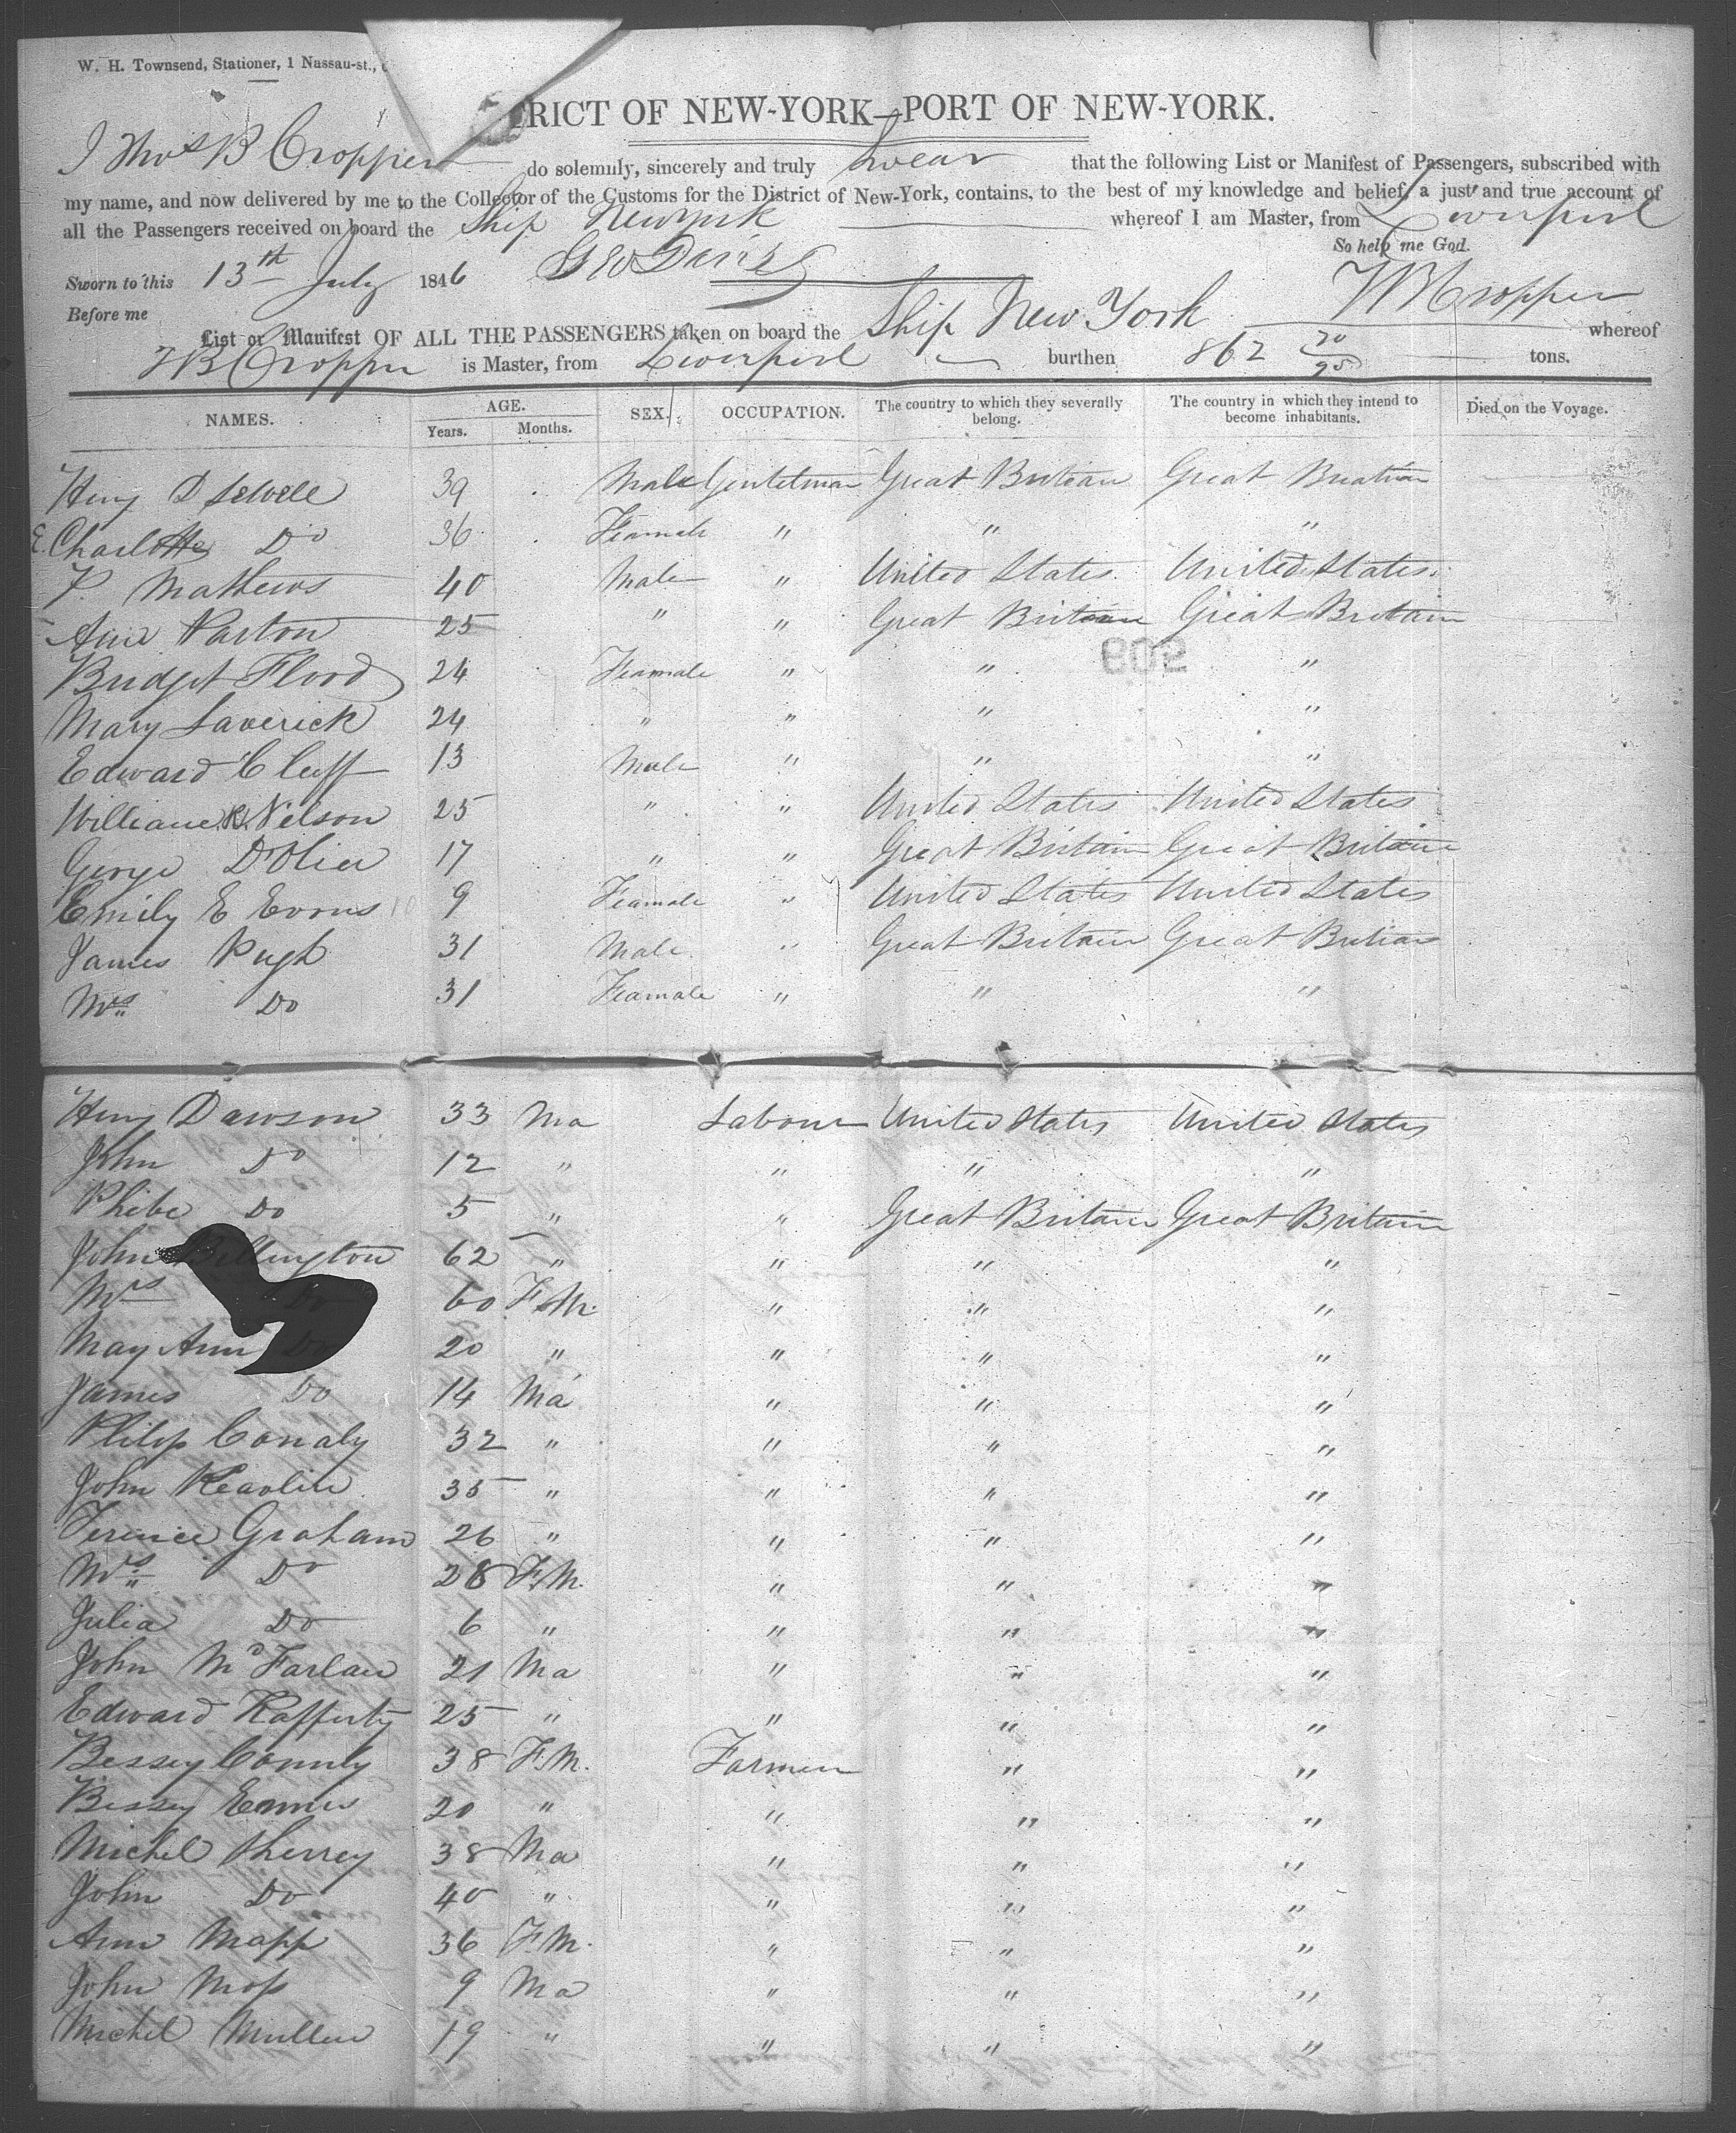 W. H. Townsend, Stationer, 1 Nassau-st.,
RICT OF NEW-YORK—PORT OF NEW-YORK.
I Thos B Cropper do solemnly, sincerely and truly Swear that the following List or Manifest of Passengers, subscribed with
my name, and now delivered by me to the Collector of the Customs for the District of New-York, contains, to the best of my knowledge and belief, a just and true account of
all the Passengers received on board the Ship New York whereof I am Master, from Liverpool
So help me God.
Sworn to this 13th July 1846
T B Cropper
Before me
List or Manifest OF ALL THE PASSENGERS taken on board the Ship New York whereof
T B Cropper is Master, from Liverpool burthen 862 20/95 tons.
NAMES. AGE. SEX. OCCUPATION. The country to which they severally belong. The country in which they intend to become inhabitants. Died on the Voyage.
Years. Months.
Heny D Sewell 39 Male Gentleman Great Britian Great Britian
E. Charlotte Do 36 Feamale " " "
P. Mathews 40 Male " United States United States
Ann Parton 25 " " Great Britain Great Britain
Bridget Flood 24 Feamale " " "
802
Mary Laverick 24 " " " "
Edward Cluff 13 Male " " "
William B. Nelson 25 " " United States United States
George D'Olier 17 " " Great Britain Great Britain
Emily E Evons 10 9 Feamale " United States United States
James Pugh 31 Male " Great Britain Great Britian
Mrs Do 31 Feamale " " "
Heny Dawson 33 Ma Labour United States United States
John Do 12 " " " "
Phibe Do 5 " " Great Britain Great Britain
John Billington 62 " " " "
Mrs Do 60 F.M. " " "
May Ann Do 20 " " " "
James Do 14 Ma " " "
Philip Conaly 32 " " " "
John 35 " " " "
Terence Graham 26 " " " "
Mrs Do 28 F.M. " " "
Julia Do 6 " " " "
John McFarlan 21 Ma " " "
Edward Rafferty 25 " " " "
Bessey Connly 38 F.M. Farmer " "
Bessey Ennis 20 " " " "
Michel Sherrey 38 Ma " " "
John Do 40 " " " "
Ann Mapp 36 F.M. " " "
John Mop 9 Ma " " "
Michel Mullen 19 " " " "